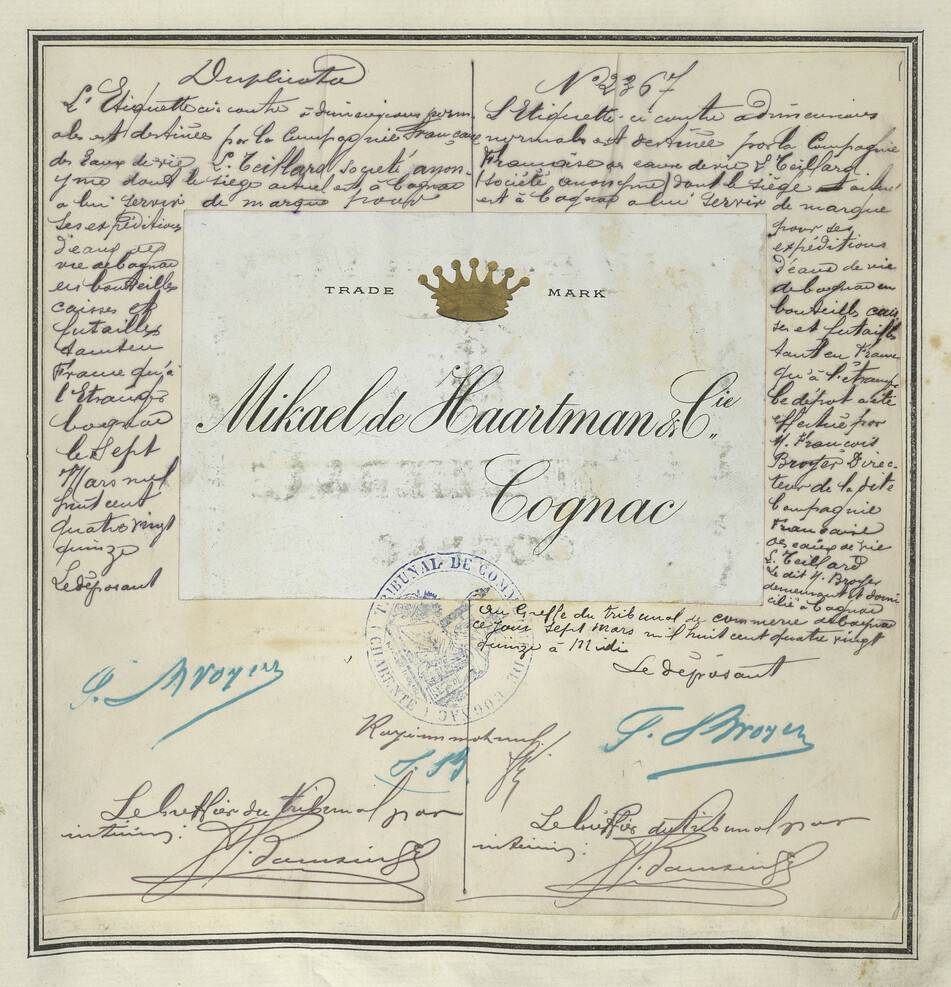 Duplicata
L'Etiquette ci contre à dimensions norm-
ales est destinée par la Compagnie Française
des Eaux de vie L. Teillard société anon-
yme dont le siège actuel est à Cognac
a lui servir de marque pour
ses expéditions
d'eaux de
vie de Cognac
en bouteilles
caisses et
futailles
tant en
France qu'à
l'Etranger
Cognac
le Sept
Mars mil
huit cent
quatre vingt
quinze
Le déposant
F. Broyer
Le Greffier du tribunal par
intérim:
No 2367
L'Etiquette ci contre à dimensions
normales est destinée par la Compagnie
Française des eaux de vie L. Teillard
(société anonyme) dont le siège actuel
est à Cognac a lui servir de marque
pour ses
expéditions
d'eaux de vie
de Cognac en
bouteilles cais
ses et futailles
tant en France
qu'à l'étranger
Ce dépôt a été
effectué par
M. François
Broyer Direc-
teur de la dite
Compagnie
Francaise
des eaux de vie
L. Teillard
Le dit M. Broyer
demeurant et domi
cilié à Cognac
au Greffe du tribunal de commerce de Cognac
ce jour sept Mars mil huit cent quatre vingt
quinze à Midi
Le déposant
F. Broyer
Rayé un mot nul
F. B.
Le Greffier du tribunal par
intérim:
TRADE MARK
Mikael de Haartman & Cie
Cognac
TRIBUNAL DE COMMERCE DE COGNAC (CHARENTE)